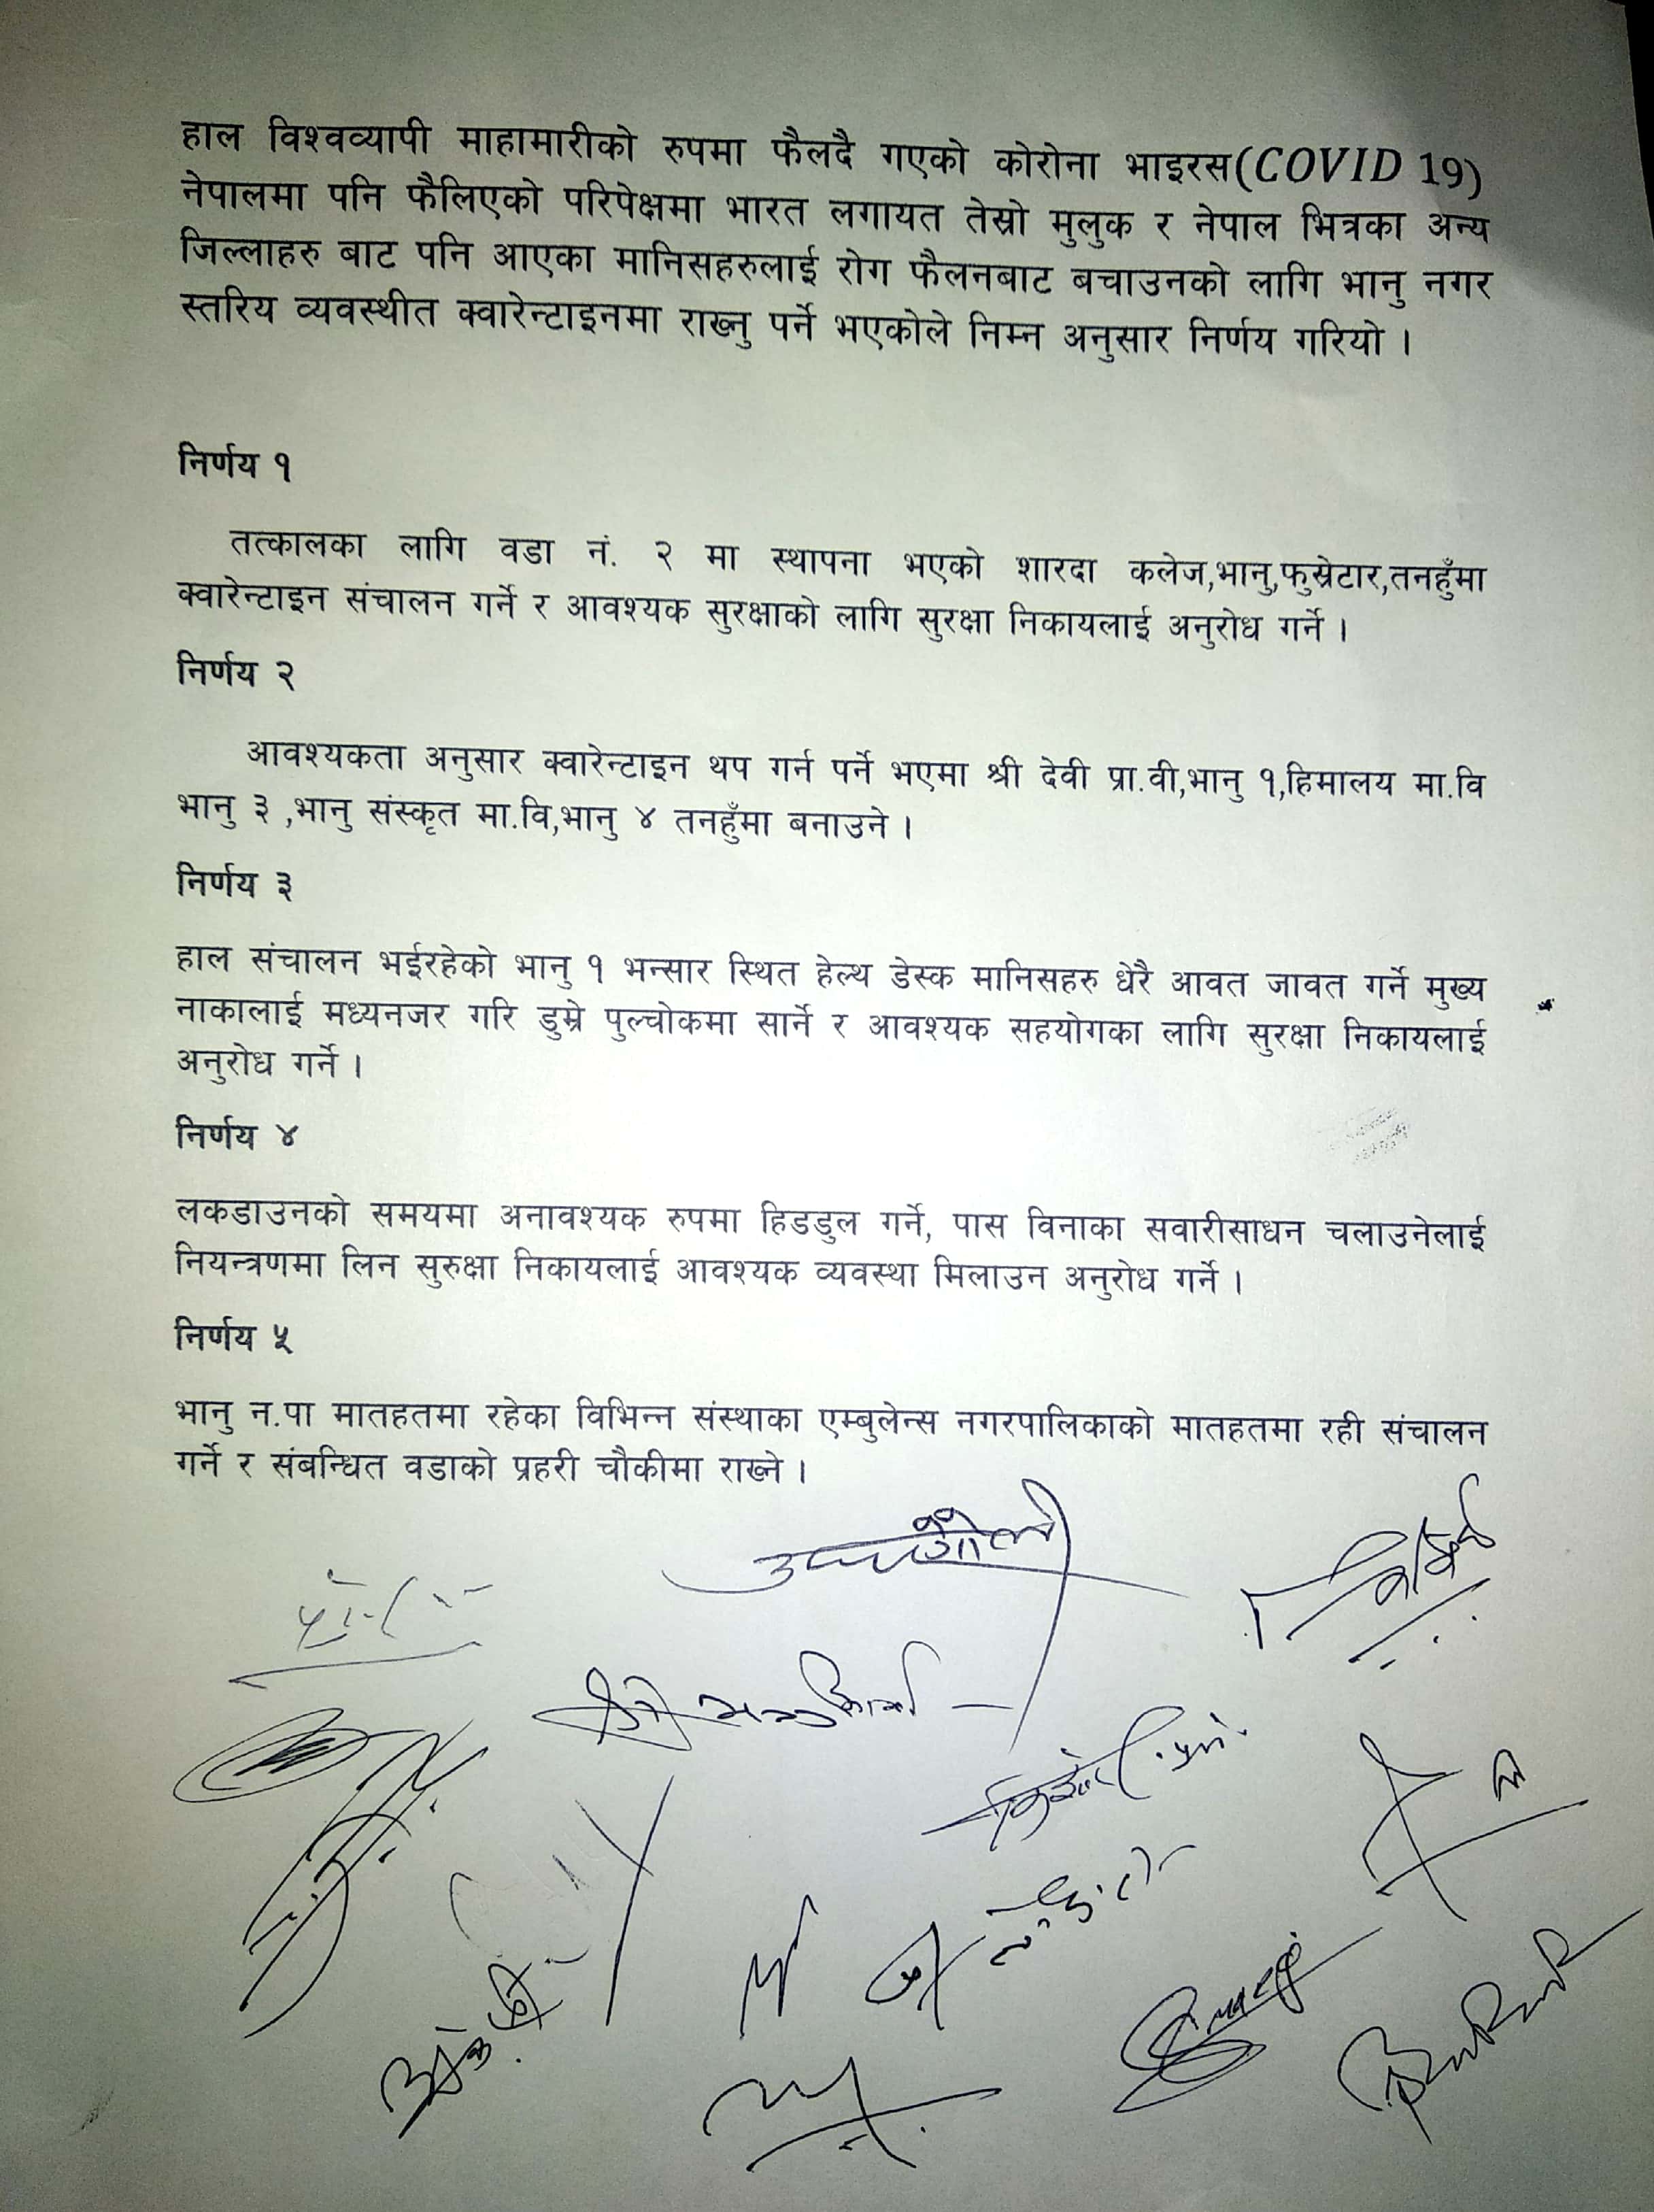 हाल विश्वव्यापी माहामारीको रुपमा फैलदै गएको कोरोना भाइरस(COVID 19)
नेपालमा पनि फैलिएको परिपेक्षमा भारत लगायत तेस्रो मुलुक र नेपाल भित्रका अन्य
जिल्लाहरु बाट पनि आएका मानिसहरुलाई रोग फैलनबाट बचाउनको लागि भानु नगर
स्तरिय व्यवस्थीत क्वारेन्टाइनमा राख्नु पर्ने भएकोले निम्न अनुसार निर्णय गरियो ।
निर्णय १
तत्कालका लागि वडा नं. २ मा स्थापना भएको शारदा कलेज,भानु,फुस्रेटार,तनहुँमा
क्वारेन्टाइन संचालन गर्ने र आवश्यक सुरक्षाको लागि सुरक्षा निकायलाई अनुरोध गर्ने ।
निर्णय २
आवश्यकता अनुसार क्वारेन्टाइन थप गर्न पर्ने भएमा श्री देवी प्रा.वी,भानु १,हिमालय मा.वि
भानु ३ ,भानु संस्कृत मा.वि,भानु ४ तनहुँमा बनाउने ।
निर्णय ३
हाल संचालन भईरहेको भानु १ भन्सार स्थित हेल्थ डेस्क मानिसहरु धेरै आवत जावत गर्ने मुख्य
नाकालाई मध्यनजर गरि डुम्रे पुल्चोकमा सार्ने र आवश्यक सहयोगका लागि सुरक्षा निकायलाई
अनुरोध गर्ने ।
निर्णय ४
लकडाउनको समयमा अनावश्यक रुपमा हिडडुल गर्ने, पास विनाका सवारीसाधन चलाउनेलाई
नियन्त्रणमा लिन सुरुक्षा निकायलाई आवश्यक व्यवस्था मिलाउन अनुरोध गर्ने ।
निर्णय ५
भानु न.पा मातहतमा रहेका विभिन्न संस्थाका एम्बुलेन्स नगरपालिकाको मातहतमा रही संचालन
गर्ने र संबन्धित वडाको प्रहरी चौकीमा राख्ने ।